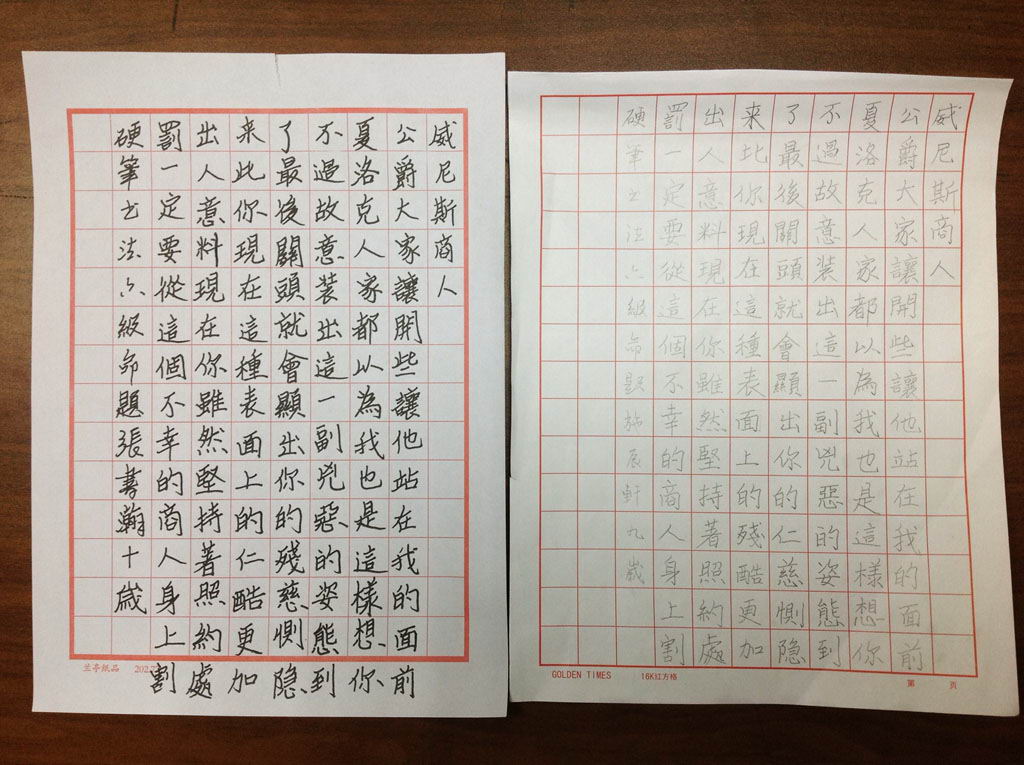 威尼斯商人
公爵大家讓開些讓他站在我的面前
夏洛克人家都以為我也是這樣想你
不過故意装出這一副兇惡的姿態到
了最後關頭就會顯出你的殘慈惻隐
来此你現在這種表面上的仁酷更加
出人意料現在你雖然堅持著照約處
罰一定要從這個不幸的商人身上割
硬筆书法六級命題張書瀚十歲
兰亭紙品
威尼斯商人
公爵大家讓開些讓他站在我的面前
夏洛克人家都以為我也是這樣想你
不過故意装出這一副兇惡的姿態到
了最後關頭就會顯出你的仁慈惻隐
来比你現在這種表面上的殘酷更加
出人意料現在你雖然堅持著照約處
罰一定要從這個不幸的商人身上割
硬筆书法六級命題施辰軒九歲
GOLDEN TIMES 16K红方格 第 頁